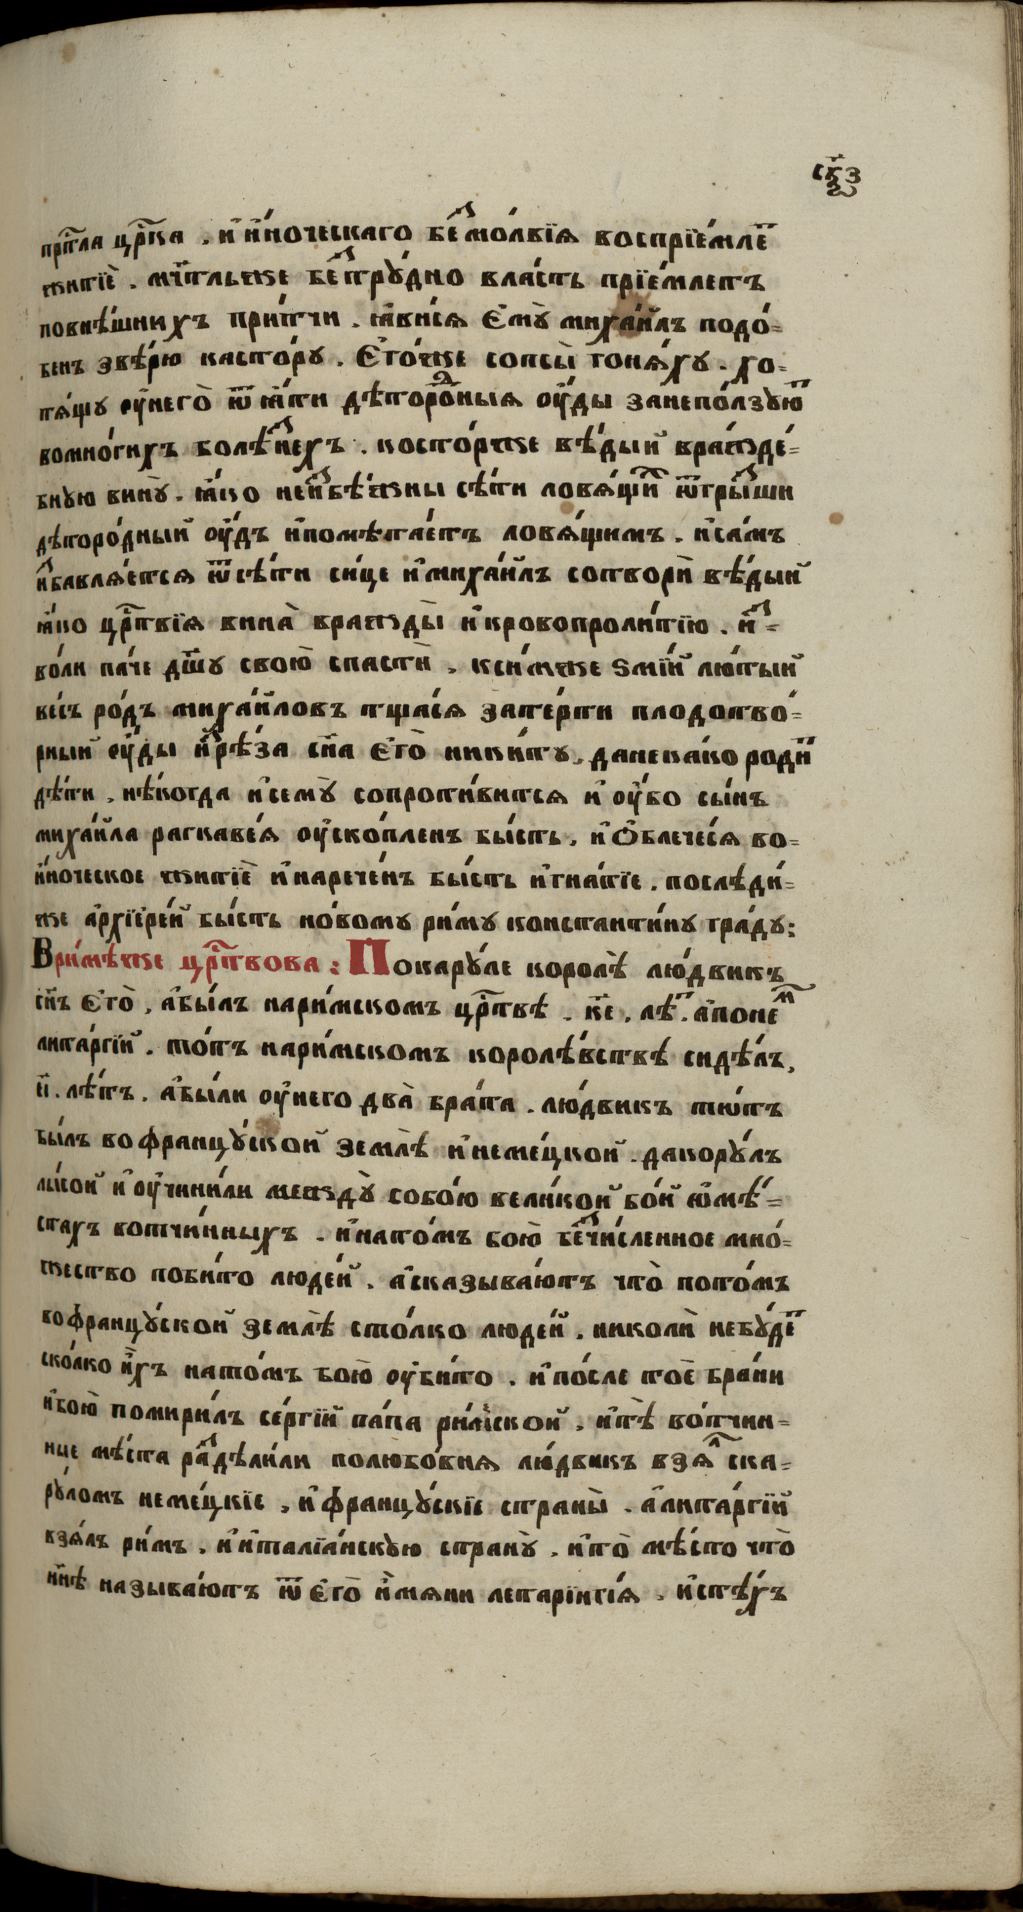 прⷭ҇тла црⷭ҇ка . и҆ и҆́ноческаго беⷥ҇мо́лвїѧ воспрїе́млеⷮ
житїѐ . мч҃тль же беⷥ҇трꙋ́дно вла́сть прїе́млетъ
повнѣ́шнихъ при́тчи . ꙗ҆ви́сѧ є҆мꙋ̀ михаи́лъ подо́-
бенъ звѣ́рю касто́рꙋ . є҆го́же сопсы̀ гонѧ́хꙋ . хо-
тѧ́щꙋ ᲂу҆него̀ ѿꙗ҆́ти дѣторо́дныѧ ᲂу҆́ды занепо́лзꙋюⷮ
вомно́гихъ болѣ́ⷥнехъ . косто́рже вѣ́дый вражде́-
бнꙋю винꙋ̀ . ꙗ҆́ко неиⷥ҇бѣ́жны сѣ́ти ловѧ́щиⷯ ѿгры́ⷥши
дѣторо́дный ᲂу҆́дъ и҆помѣта́етъ ловѧ́щимъ . и҆са́мъ
иⷥ҇бавлѧ́етсѧ ѿсѣ́ти си́це и҆михаи́лъ сотворѝ вѣ́дый
ꙗ҆́ко црⷭ҇твїѧ вина̀ вражды̀ и҆кровопроли́тїю . иⷥ҇-
во́ли па́че дш҃ꙋ свою̀ спастѝ . ксимже ѕмі́й лю́тый
ве́сь ро́дъ миха́иловъ тща́сѧ затерти плодотво-
рный ᲂу҆́ды и҆ⷥрѣ́за сн҃а є҆го̀ ники́тꙋ . данека́ко родиⷮ
дѣ́ти . нѣ́когда и҆семꙋ̀ сопроти́витсѧ и҆ ᲂу҆́бо сы́нъ
миха́ила рагкаве́ѧ ᲂу҆ско́пленъ бы́сть . и҆ ѡ҆блече́сѧ во-
и҆́ноческое житїѐ и҆нарече́нъ бы́сть и҆гна́тїе . послѣди́-
же а҆рхїере́й бы́сть но́вомꙋ ри́мꙋ константи́нꙋ гра́дꙋ :
Ври́мѣже црⷭ҇твова : Покарꙋле королѐ лю́двикъ
сн҃ъ є҆го̀ . а҆бы́лъ нари́мскомъ црⷭ҇твѣ . к҃е . лѣⷮ . а҆понеⷨ
литаргі́й . то́тъ нари́мскомъ королѣ́вствѣ сидѣ́лъ ,
н҃ . лѣтъ . а҆бы́ли ᲂу҆него два̀ бра́та . лю́двикъ тѡ́тъ
бы́лъ во францꙋ́ской землѣ̀ и҆неме́цкой . дакорꙋ́лъ
лысой и҆ ᲂу҆чини́ли междꙋ̀ собо́ю вели́кой бо́й ѡ҆мѣ́-
стахъ вотчи́нныхъ . и҆нато́мъ бою̀ беⷥ҇чи́сленное мно́-
жество поби́то люде́й . а҆сказыва́ютъ что̀ пото́мъ
во францꙋ́ской землѣ̀ сто́лко люде́й . николѝ небꙋ́деⷮ
ско́лко и҆́хъ нато́мъ бою̀ ᲂу҆би́то . и҆по́сле тоѐ бра́ни
и҆бою̀ помири́лъ се́ргїй па́па ри́мской . и҆тѣ̀ во́тчин-
ные мѣ́ста раⷥ҇дѣли́ли полюбо́внѧ лю́двикъ взѧⷧ҇ ска-
рꙋломъ неме́цкїе . и҆францꙋ́скїе страны̀ . а҆литаргі́й
взѧ́лъ ри́мъ . и҆и҆талїа́нскꙋю странꙋ̀ . и҆то̀ мѣ́сто что̀
нн҃ѣ называ́ютъ ѿ є҆го̀ и҆́мѧни летарінгі́ѧ . и҆стѣ́хъ